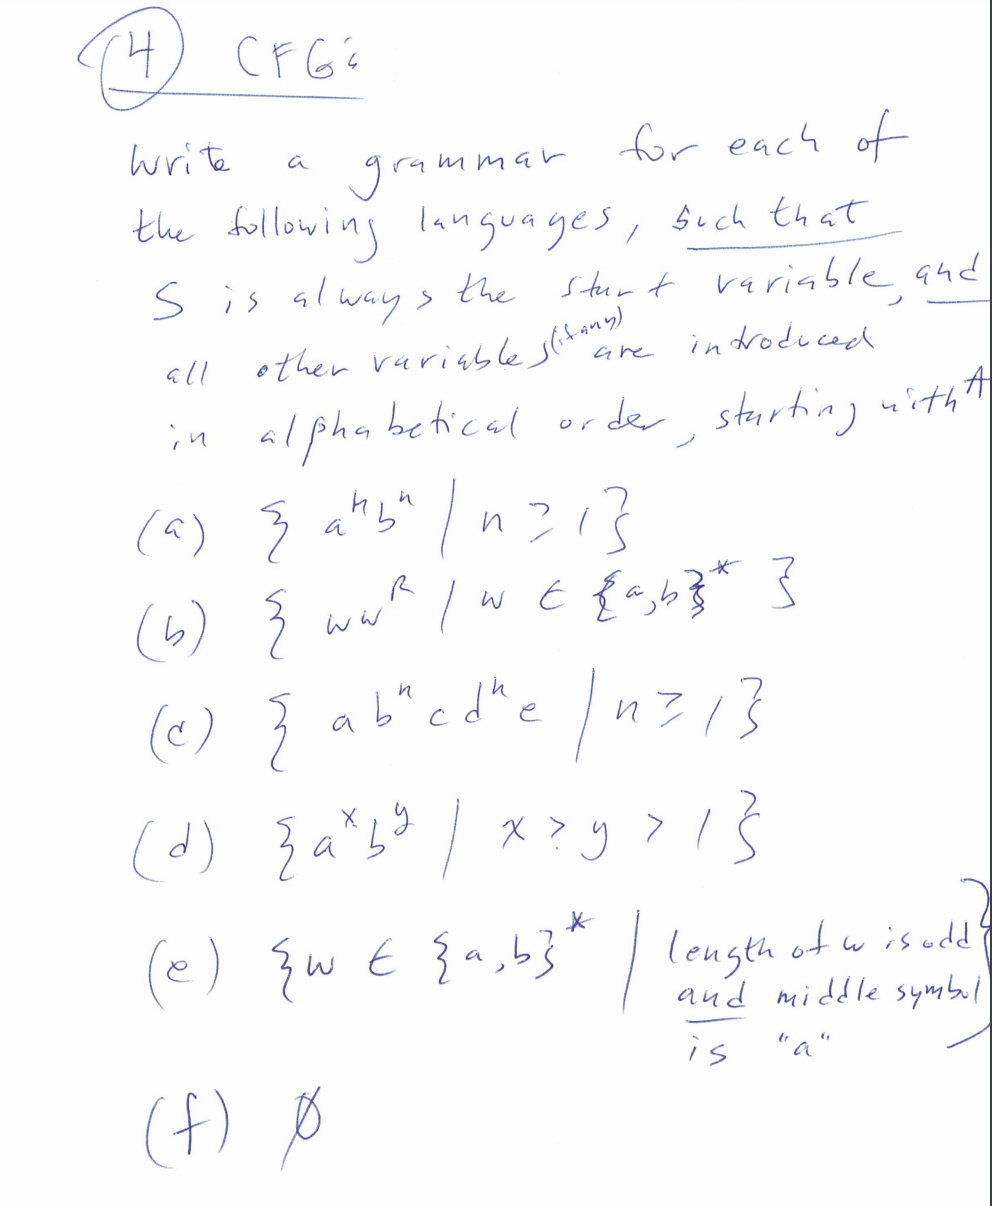 ④ CFG's
Write a grammar for each of
the following languages, such that
S is always the start variable, and
all other variables (if any) are introduced
in alphabetical order, starting with A
(a) { aⁿbⁿ | n ≥ 1 }
(b) { wwᴿ | w ∈ {a,b}* }
(c) { abⁿcdⁿe | n ≥ 1 }
(d) { aˣbʸ | x > y > 1 }
(e) { w ∈ {a,b}* | length of w is odd
and middle symbol
is "a" }
(f) ∅